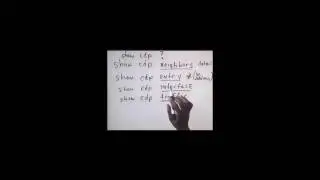 show cdp ?
show cdp neighbors detail
show cdp entry *
show cdp interface
show cdp traffic